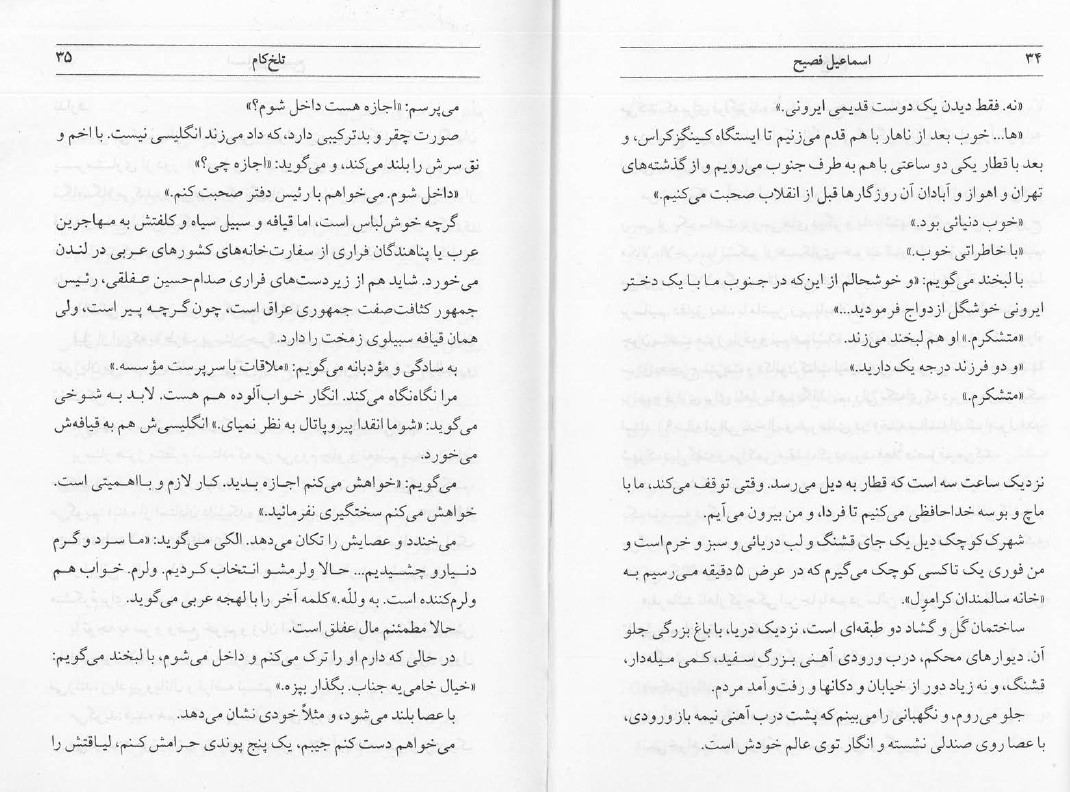 ۳۴
اسماعیل فصیح
«نه. فقط دیدن یک دوست قدیمی ایرونی.»
«ها... خوب بعد از ناهار با هم قدم می‌زنیم تا ایستگاه کینگزکراس، و
بعد با قطار یکی دو ساعتی با هم به طرف جنوب می‌رویم و از گذشته‌های
تهران و اهواز و آبادان آن روزگارها قبل از انقلاب صحبت می‌کنیم.»
«خوب دنیائی بود.»
«با خاطراتی خوب.»
با لبخند می‌گویم: «و خوشحالم از این‌که در جنوب ما با یک دختر
ایرونی خوشگل ازدواج فرمودید...»
«متشکرم.» او هم لبخند می‌زند.
«و دو فرزند درجه یک دارید.»
«متشکرم.»
نزدیک ساعت سه است که قطار به دیل می‌رسد. وقتی توقف می‌کند، ما با
ماچ و بوسه خداحافظی می‌کنیم تا فردا، و من بیرون می‌آیم.
شهرک کوچک دیل یک جای قشنگ و لب دریائی و سبز و خرم است و
من فوری یک تاکسی کوچک می‌گیرم که در عرض ۵ دقیقه می‌رسیم به
«خانه سالمندان کرامول».
ساختمان گَل و گشاد دو طبقه‌ای است، نزدیک دریا، با باغ بزرگی جلو
آن: دیوارهای محکم، درب ورودی آهنی بزرگ سفید، کمی میله‌دار،
قشنگ، و نه زیاد دور از خیابان و دکانها و رفت‌وآمد مردم.
جلو می‌روم، و نگهبانی را می‌بینم که پشت درب آهنی نیمه باز ورودی،
با عصا روی صندلی نشسته و انگار توی عالم خودش است.
تلخ‌کام
۳۵
می‌پرسم: «اجازه هست داخل شوم؟»
صورت چقر و بدترکیبی دارد، که داد می‌زند انگلیسی نیست. با اخم و
نق سرش را بلند می‌کند، و می‌گوید: «اجازه چی؟»
«داخل شوم. می‌خواهم با رئیس دفتر صحبت کنم.»
گرچه خوش‌لباس است، اما قیافه و سبیل سیاه و کلفتش به مهاجرین
عرب یا پناهندگان فراری از سفارت‌خانه‌های کشورهای عربی در لندن
می‌خورد. شاید هم از زیردست‌های فراری صدام‌حسین عفلقی، رئیس
جمهور کثافت‌صفت جمهوری عراق است، چون گرچه پیر است، ولی
همان قیافه سبیلوی زمخت را دارد.
به سادگی و مؤدبانه می‌گویم: «ملاقات با سرپرست مؤسسه.»
مرا نگاه‌نگاه می‌کند. انگار خواب‌آلوده هم هست. لابد به شوخی
می‌گوید: «شوما انقدا پیروپاتال به نظر نمیای.» انگلیسی‌ش هم به قیافه‌ش
می‌خورد.
می‌گویم: «خواهش می‌کنم اجازه بدید. کار لازم و بااهمیتی است.
خواهش می‌کنم سختگیری نفرمائید.»
می‌خندد و عصایش را تکان می‌دهد. الکی می‌گوید: «ما سرد و گرم
دنیارو چشیدیم... حالا ولرمشو انتخاب کردیم. ولرم. خواب هم
ولرم‌کننده است. به وللّه.» کلمه آخر را با لهجه عربی می‌گوید.
حالا مطمئنم مال عفلق است.
در حالی که دارم او را ترک می‌کنم و داخل می‌شوم، با لبخند می‌گویم:
«خیال خامی‌یه جناب. بگذار بپزه.»
با عصا بلند می‌شود، و مثلاً خودی نشان می‌دهد.
می‌خواهم دست کنم جیبم، یک پنج پوندی حرامش کنم، لیاقتش را